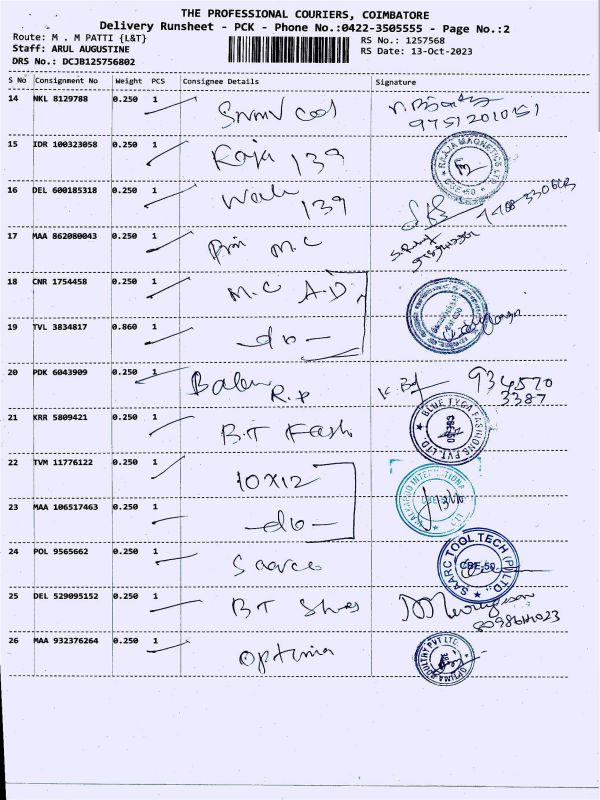 THE PROFESSIONAL COURIERS, COIMBATORE
Delivery Runsheet - PCK - Phone No.:0422-3505555 - Page No.:2
Route: M . M PATTI {L&T}
RS No.: 1257568
Staff: ARUL AUGUSTINE
RS Date: 13-Oct-2023
DRS No.: DCJB125756802
S No Consignment No Weight PCS Consignee Details Signature
14 NKL 8129788 0.250 1
9751201051
15 IDR 100323058 0.250 1 Raja 139
RAAJA MAGNETICS LTD
CBE-50
16 DEL 600185318 0.250 1 139
17 MAA 862080043 0.250 1 M.C
18 CNR 1754458 0.250 1 M.C A.D
19 TVL 3834817 0.860 1 -do-
20 PDK 6043909 0.250 1 R.P
934570
3387
21 KRR 5809421 0.250 1 B.T Fash
BLUE TYGA FASHIONS PVT. LTD.
22 TVM 11776122 0.250 1 10X12
23 MAA 106517463 0.250 1 -do-
24 POL 9565662 0.250 1 Saarc
SAARC TOOL TECH (P) LTD.,
CBE-50
25 DEL 529095152 0.250 1 B T Shoes
26 MAA 932376264 0.250 1 Optima
OPTIMA POULTRY PVT LTD